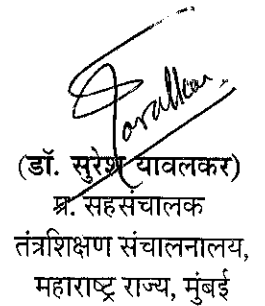 (डॉ. सुरेश यावलकर)
प्र. सहसंचालक
तंत्रशिक्षण संचालनालय,
महाराष्ट्र राज्य, मुंबई